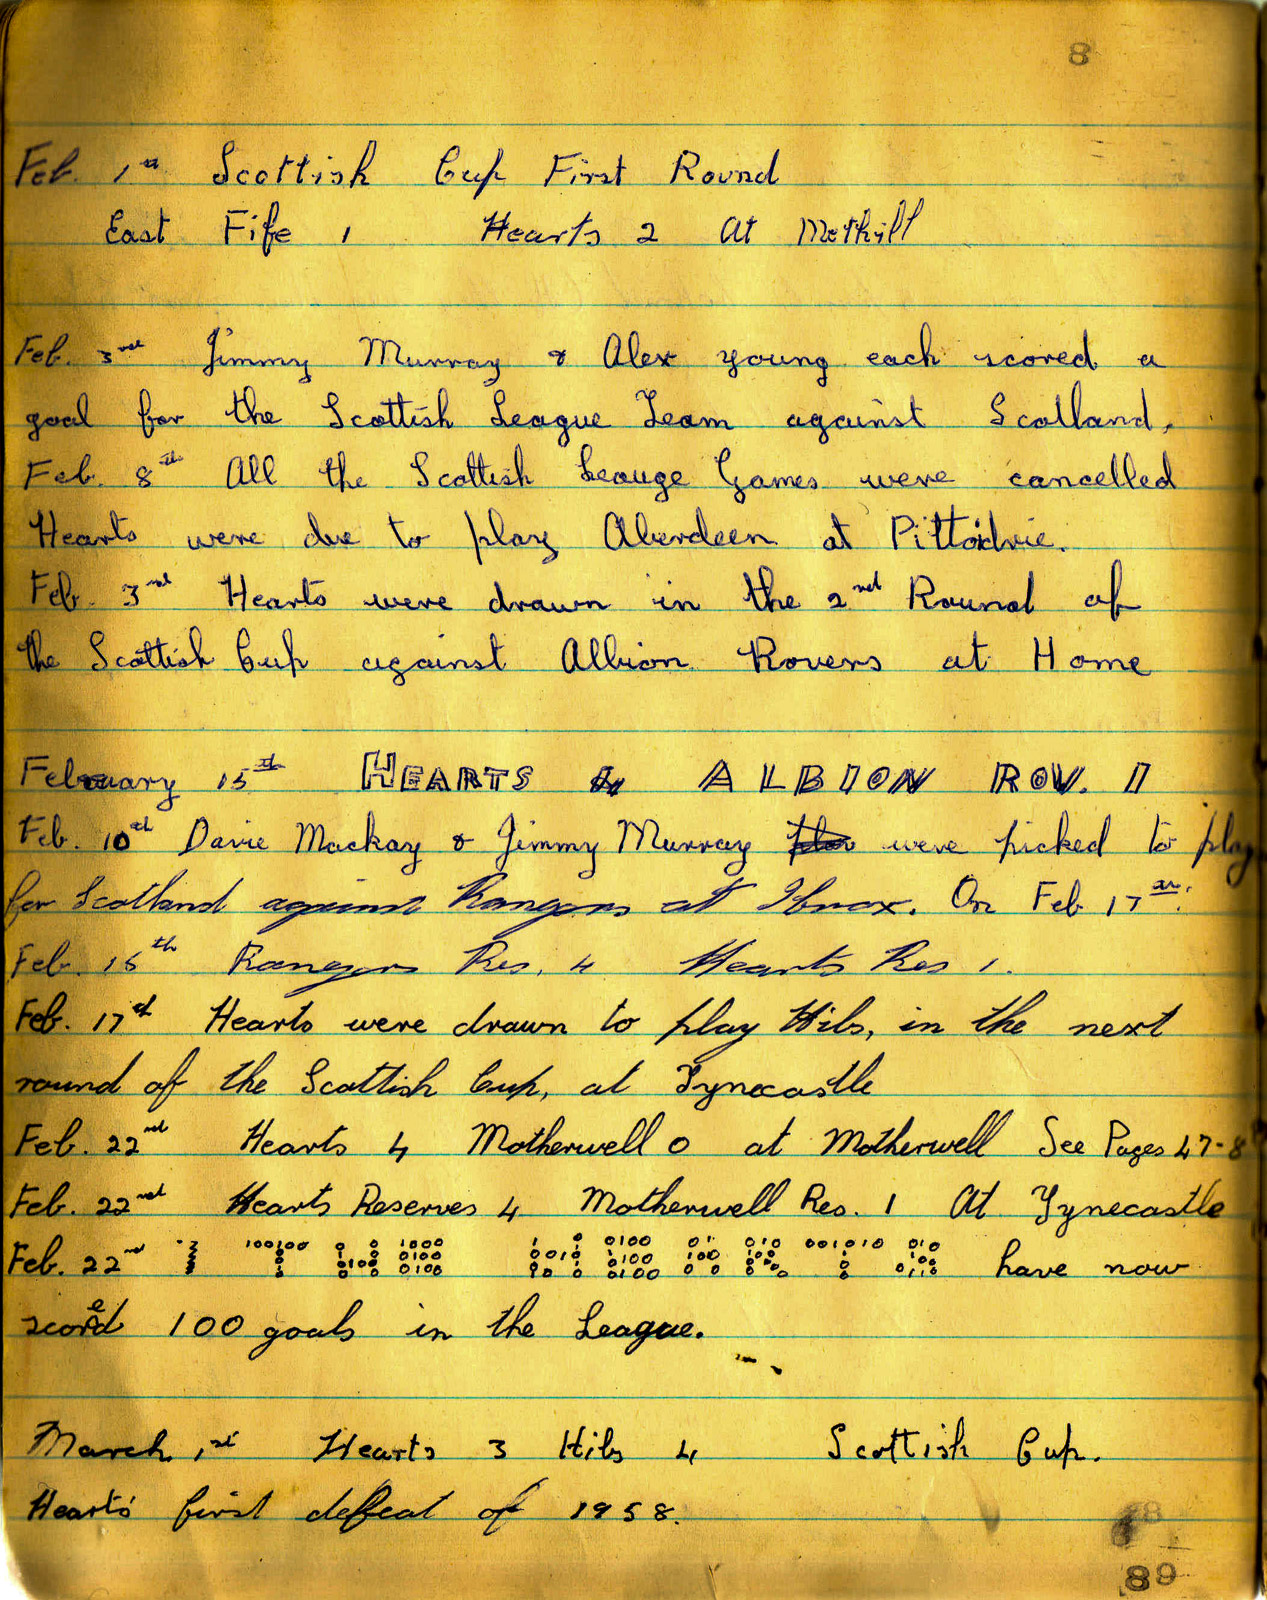 8
Feb. 1st Scottish Cup First Round
East Fife 1 Hearts 2 At Methill
Feb. 3rd Jimmy Murray & Alex young each scored a
goal for the Scottish League Team against Scotland.
Feb. 8th All the Scottish Leauge Games were cancelled
Hearts were due to play Aberdeen at Pittodrie.
Feb. 3rd Hearts were drawn in the 2nd Round of
the Scottish Cup against Albion Rovers at Home
February 15th HEARTS 4 ALBION ROV. 1
Feb. 10th Davie Mackay & Jimmy Murray were picked to play
for Scotland against Rangers at Ibrox. On Feb 17th.
Feb. 15th Rangers Res. 4 Hearts Res 1.
Feb. 17th Hearts were drawn to play Hibs, in the next
round of the Scottish Cup, at Tynecastle
Feb. 22nd Hearts 4 Motherwell 0 at Motherwell See Pages 47-8
Feb. 22nd Hearts Reserves 4 Motherwell Res. 1 At Tynecastle
Feb. 22nd have now
scored 100 goals in the League.
March 1st Hearts 3 Hibs 4 Scottish Cup.
Hearts' first defeat of 1958.
89